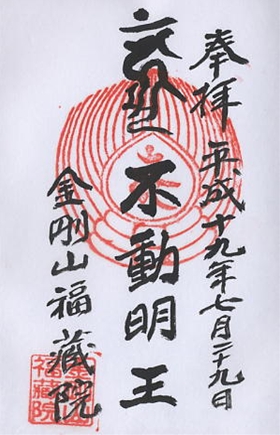 奉拝 平成十九年七月二十九日
不動明王
金剛山福蔵院
福蔵院